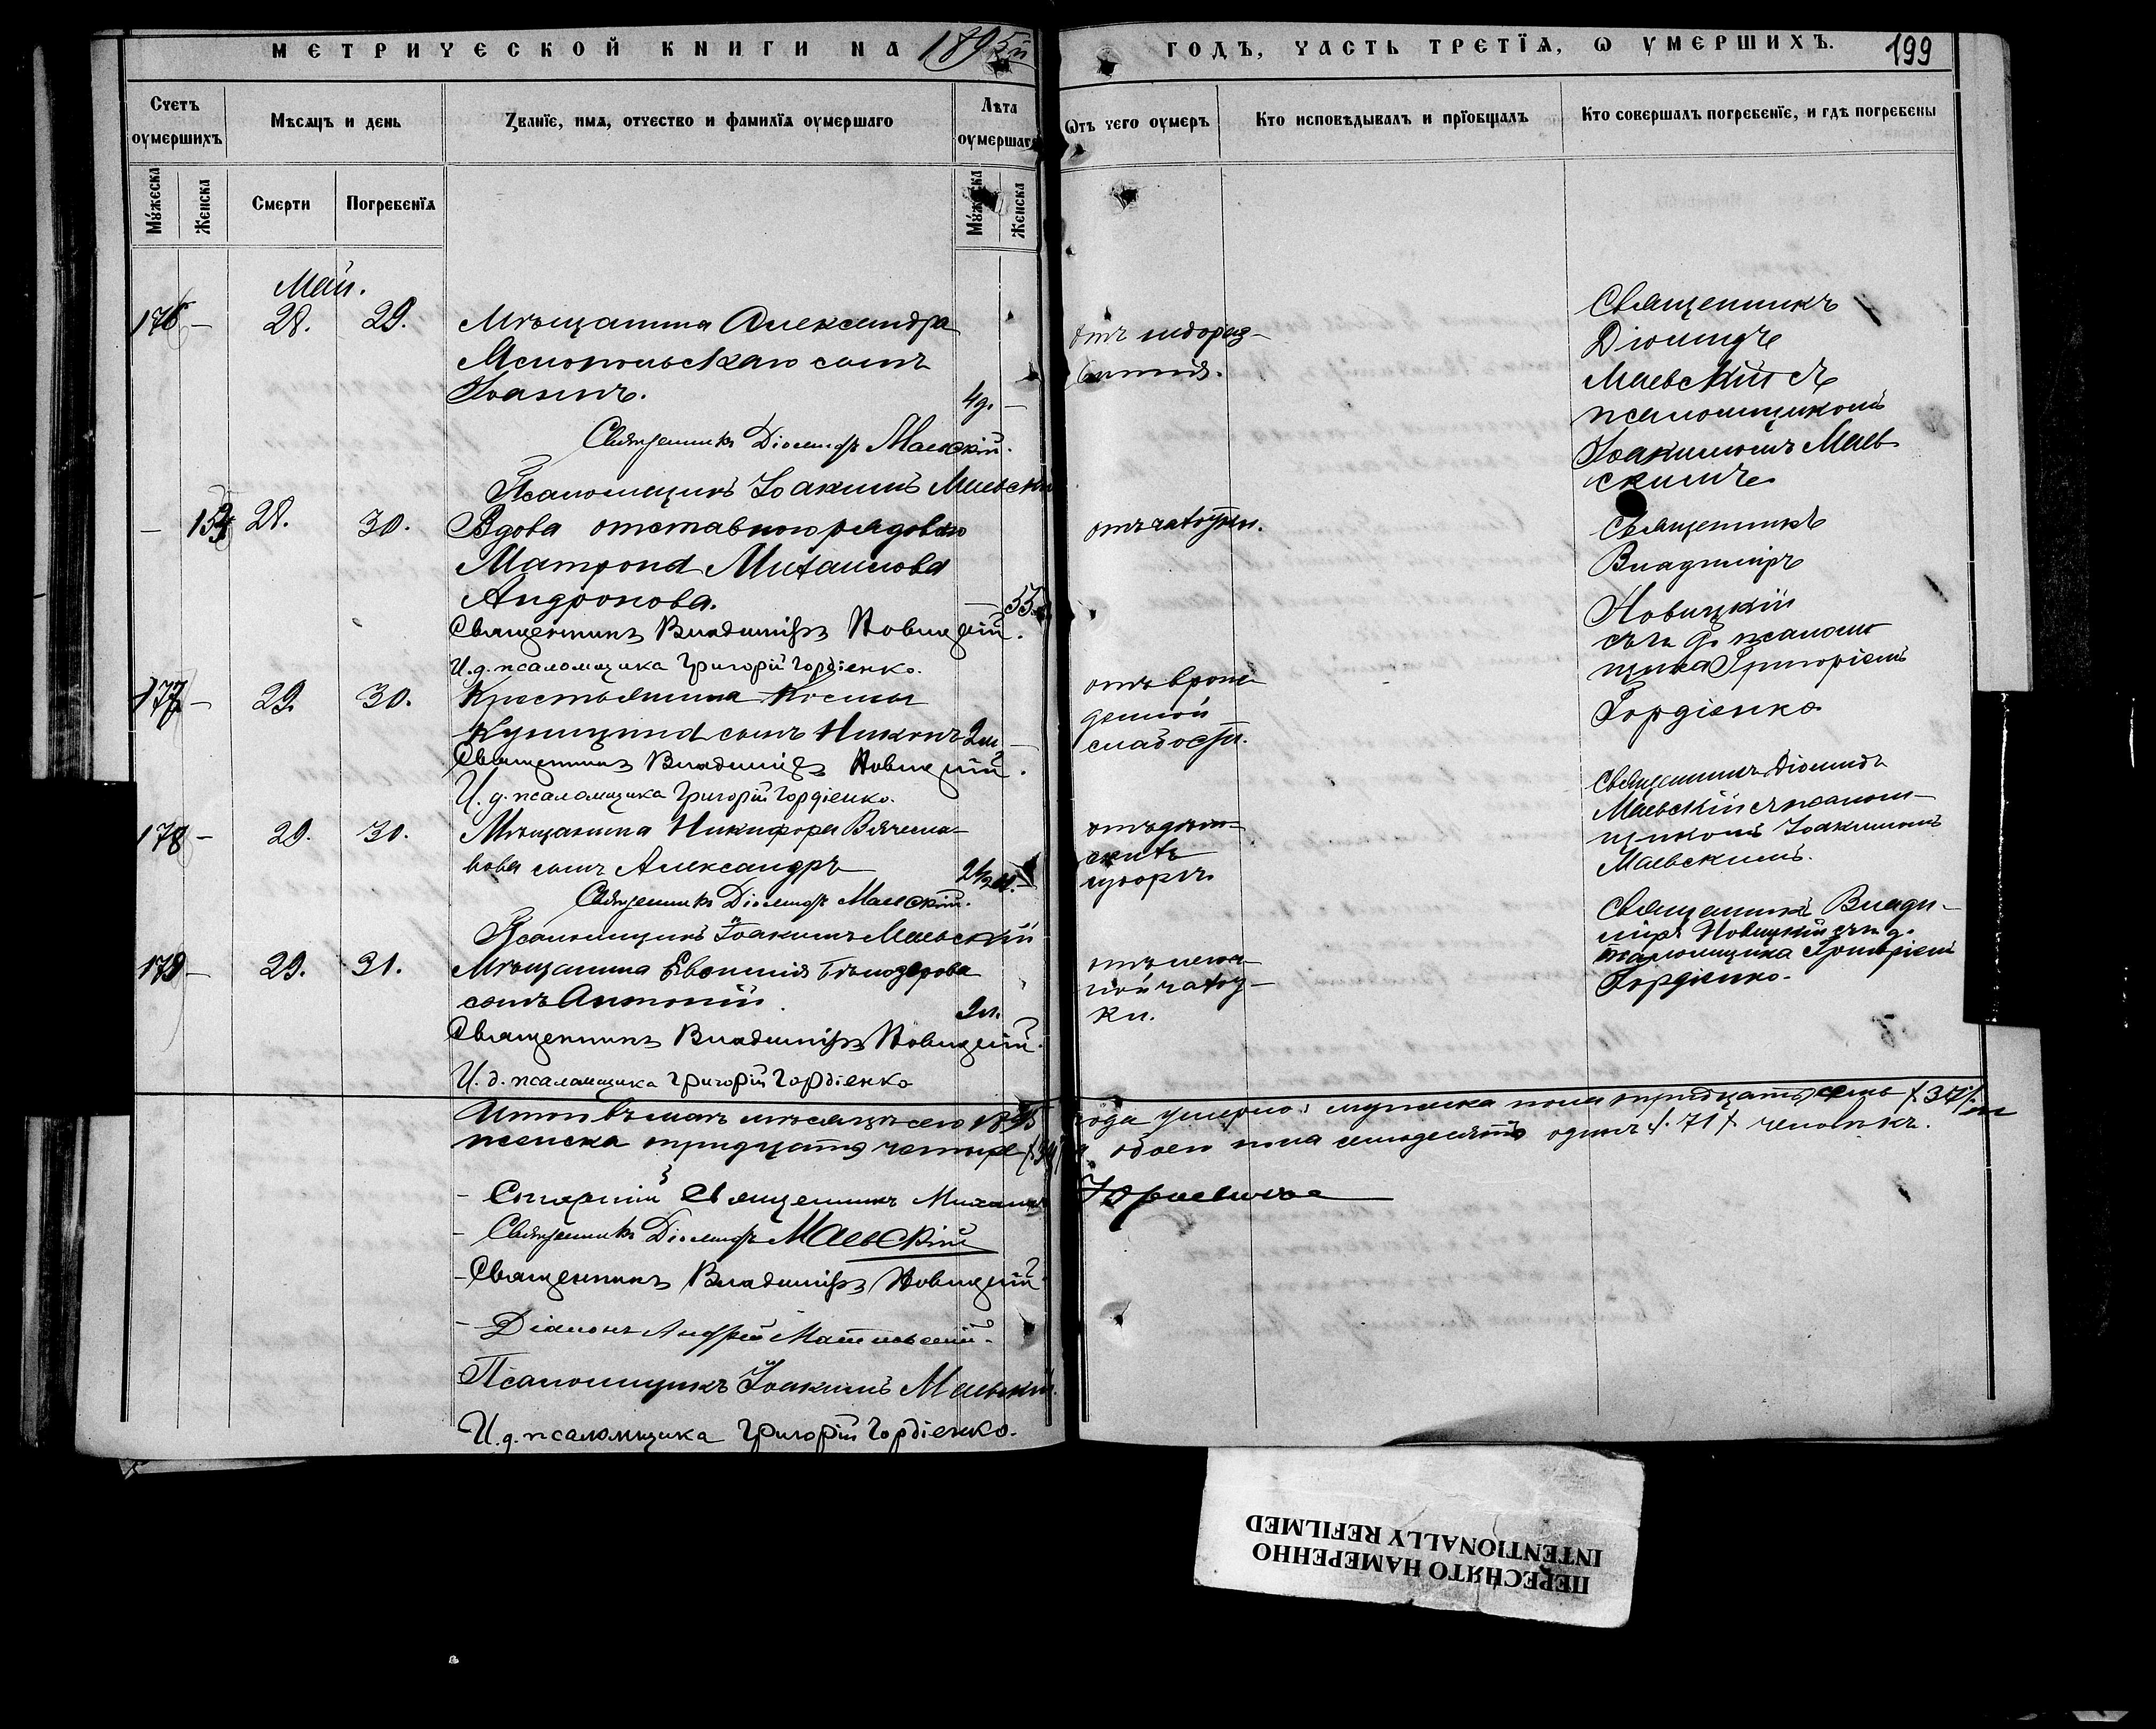 МЕТРИЧЕСКОЙ КНИГИ НА 1895й ГОДЪ, ЧАСТЬ ТРЕТЇѦ, Ѡ УМЕРШИХЪ.
199
Счетъ оумершихъ
Мѣсѧцъ и день
Ꙁванїе, имѧ, отчество и фамилїѧ оумершаго
Лѣта оумершаго
Ѿтъ чего оумеръ
Кто исповѣдывалъ и прїобщалъ
Кто совершалъ погребенїе, и гдѣ погребены
Мꙋжеска
Женска
Смерти
Погребенїѧ
Мꙋжеска
Женска
Май.
176 – 28. 29.
Мѣщанина Александра
сынъ
Іоаннъ. 4д. –
Священникъ Діомидъ Маевскій.
Псаломщикъ Іоакимъ Маевскій
Священникъ
Діомидъ
Маевскій съ
псаломщикомъ
Іоакимомъ Маев-
скимъ
– 28. 30.
Вдова отставного рядового
Матрона Михаилова
Андронова. – 55
Священникъ Владиміръ Новицкій.
И. д. псаломщика Григорій Гордіенко.
отъ чахотки.
Священникъ
Владиміръ
Новицкій
съ и. д. псалом-
щика Григоріемъ
Гордіенко
177 – 29. 30.
Крестьянина Космы
сынъ Никонъ 2м –
Священникъ Владиміръ Новицкій.
И. д. псаломщика Григорій Гордіенко.
отъ врож-
денной
слабости.
Священникъ Діомидъ
Маевскій съ псалом-
щикомъ Іоакимомъ
Маевскимъ.
178 – 29. 30.
Мѣщанина Никифора
сынъ Александръ 2½ м. –
Священникъ Діомидъ Маевскій.
Псаломщикъ Іоакимъ Маевскій
отъ дѣт-
скихъ
Священникъ Влади-
міръ Новицкій съ и. д.
псаломщика Григоріемъ
Гордіенко.
179 – 29. 31.
Мѣщанина Евфимія Бѣлозерова
сынъ Антоній. 2м.
Священникъ Владиміръ Новицкій.
И. д. псаломщика Григорій Гордіенко
отъ лего-
чной чахот-
ки.
Итого въ маѣ мѣсяцѣ сего 1895 года умерло: мужеска пола тридцать семь /37/
женска тридцать четыре /34/ а обоего пола семьдесятъ одинъ /71/ человѣкъ.
– Священникъ Михаилъ
– Священникъ Діомидъ Маевскій
– Священникъ Владиміръ Новицкій
– Діаконъ Андрей
Псаломщикъ Іоакимъ Маевскій.
И. д. псаломщика Григорій Гордіенко.
ПЕРЕСНЯТО НАМЕРЕННО
INTENTIONALLY REFILMED